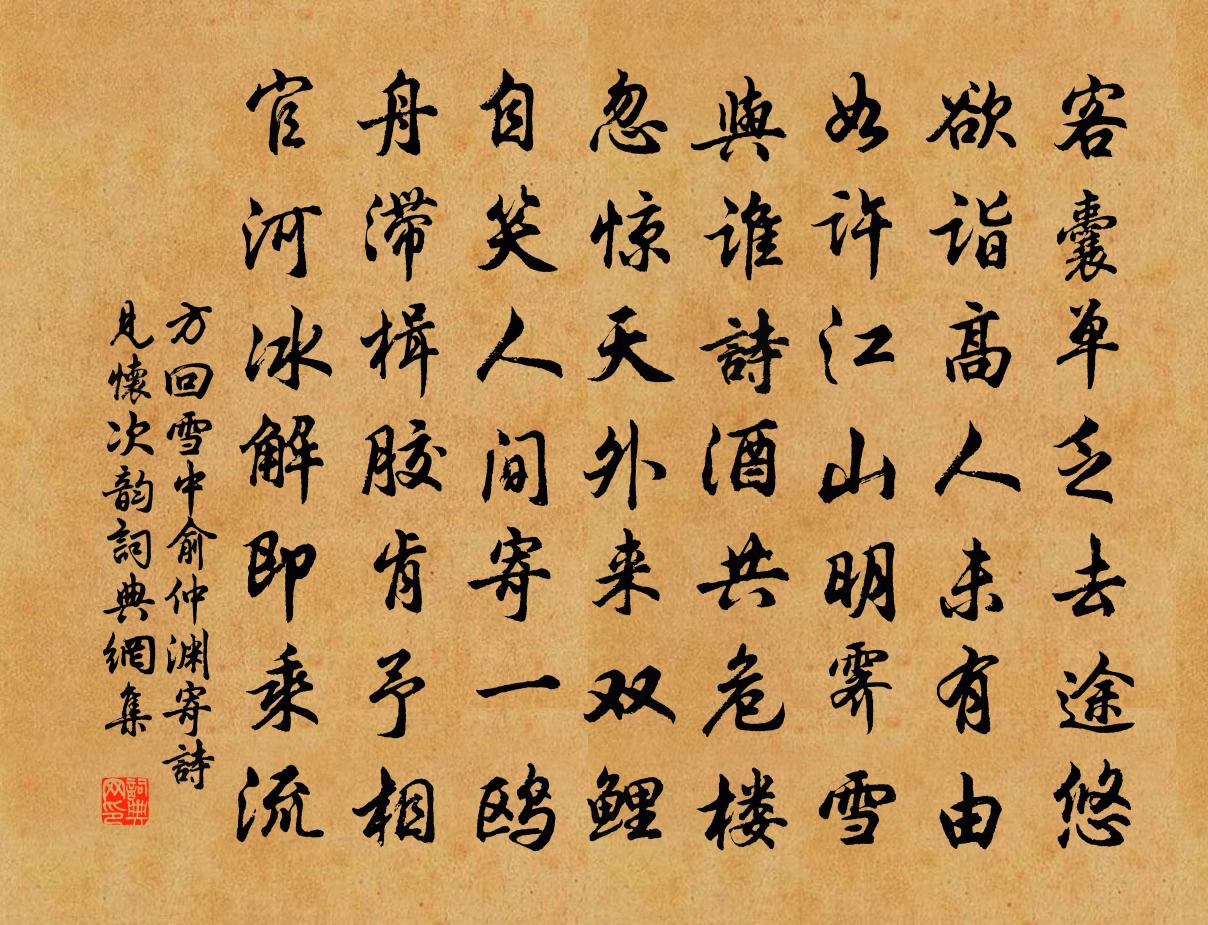 客囊单乏去途悠
欲诣高人未有由
如许江山明霁雪
與谁詩酒共危楼
忽惊天外来双鲤
自笑人间寄一鸥
舟滞楫胶肯予相
官河冰解即乘流
方回雪中俞仲渊寄詩
見懷次韵詞典網集
詞典
网印